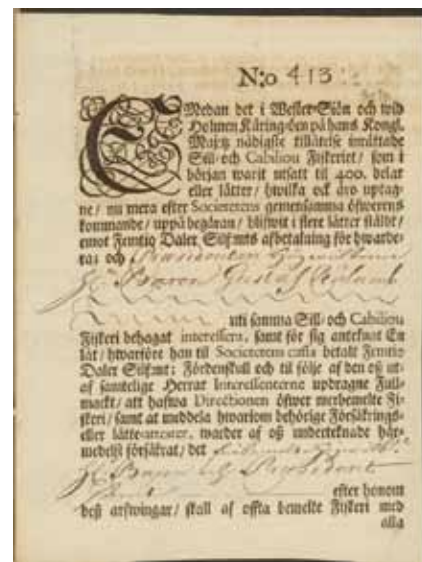 N:o 413
EMedan det i Wester-Siön och wid
Holmen Käring-öen på hans Kongl.
Maj:tz nådigste tillåtelse inrättade
Sill- och Cabiliou Fiskeriet/ som i
början warit utsatt til 400. delar
eller låtter/ hwilka ock äro uptag-
ne/ nu mera efter Societetens gemensamma öfwerens
kommande/ uppå begäran/ blifwit i flere låtter stäldt/
emot Femtio Daler Silf:mts afbetalning för hwarde-
ra; och Præsidenten
H:r Baron Gustaf
uti samma Sill- och Cabiliou
Fiskeri behagat interessera, samt för sig anteknat En
låt/ hwarföre han til Societetens cassa betalt Femtio
Daler Silf:mt; Fördenskull och til följe af den oß ut-
af samtelige Herrar Interessenterne updragne Full-
mackt/ att hafwa Directionen öfwer merbemelte Fi-
skeri/ samt at meddela hwariom behörige Försäkrings-
eller låtte-attester, warder af oß undertecknade här-
medelst försäkrat/ det
H:r Baron och President
efter honom
deß arfwingar/ skall af offta bemelte Fiskeri med
alla